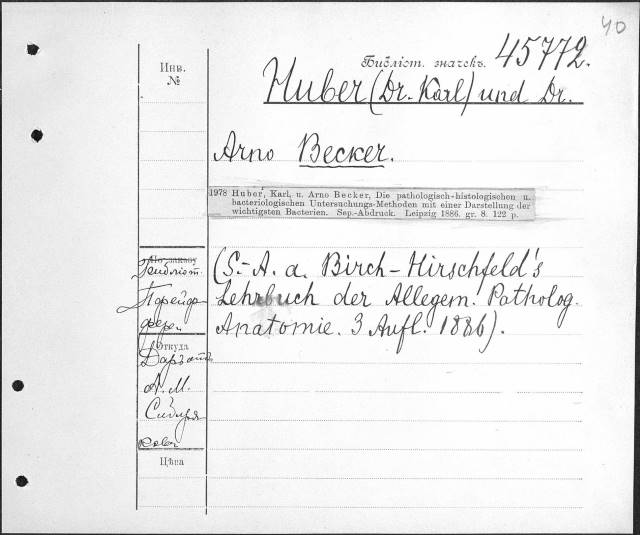 40
Библіот. значекъ. 45772.
Инв.
№
Huber (Dr. Karl) und Dr.
Arno Becker.
1978 Huber, Karl, u. Arno Becker, Die pathologisch-histologischen u.
bacteriologischen Untersuchungs-Methoden mit einer Darstellung der
wichtigsten Bacterien. Sep.-Abdruck. Leipzig 1886. gr. 8. 122 p.
(S.-A. a. Birch-Hirschfeld's
Lehrbuch der Allegem. Patholog.
Anatomie. 3 Aufl. 1886).
По заказу
Откуда
Даръ
А. М.
Цѣна